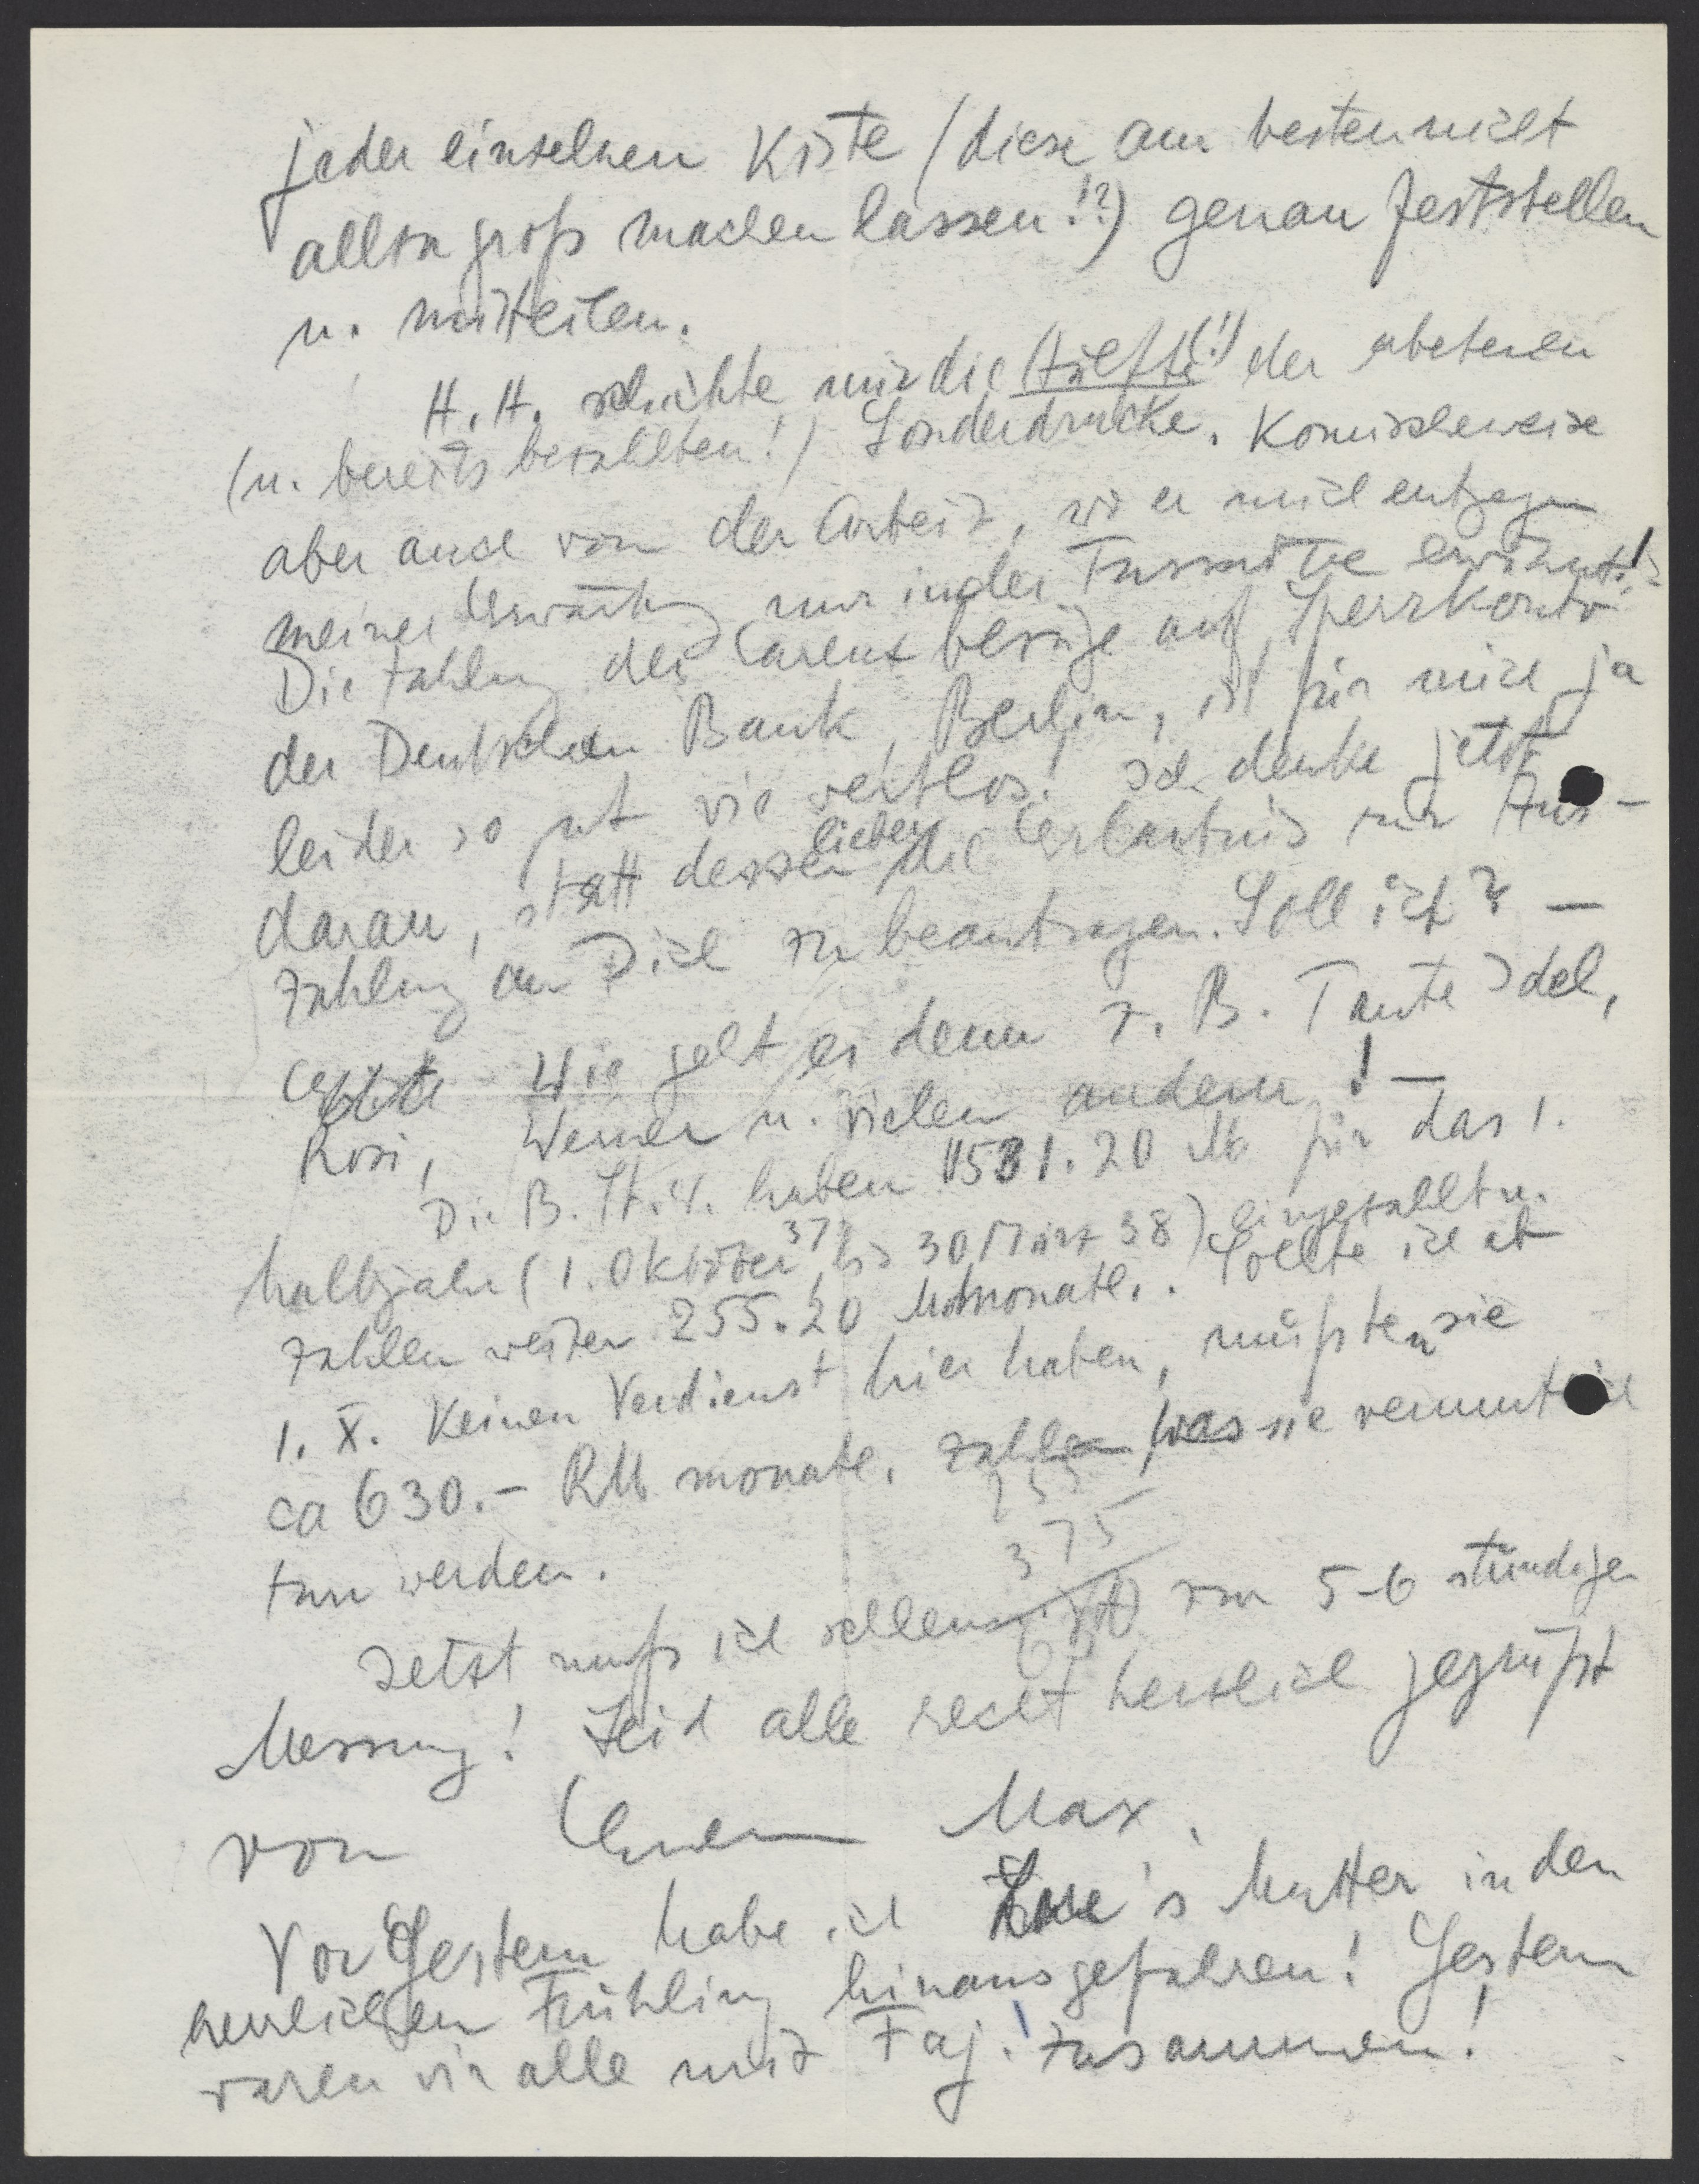 jeder einzelnen Kiste (diese am besten nicht
allzu groß machen lassen!?) genau feststellen
u. mitteilen.
H. H. schickte mir die Hälfte (!) der erbetenen
(u. bereits bezahlten!) Sonderdrucke. Komischerweise
aber auch von der Arbeit, wo er mich entgegen
meiner Erwartung nur in der Fussnote erwähnt!
Die Zahlung der Carenzbezüge auf Sperrkonto
der Deutschen Bank, Berlin, ist für mich ja
leider so gut wie wertlos! Ich denke jetzt
daran, statt dessen lieber die Erlaubnis zur Aus-
zahlung an Dich zu beantragen. Soll ich? —
Wie geht es denn z. B. Tante Idel,
Rosi, Werner u. vielen andern! —
Die B. St. haben 1531.20 M für das 1.
Halbjahr (1. Oktober 37 bis 30 März 38) eingezahlt u.
zahlen weiter 255.20 M monatl.. Sollte ich ab
1. X. keinen Verdienst hier haben, müßten sie
ca 630.- RM monatl. zahlen, was sie vermutlich
255
tun werden.
375
630
Jetzt muß ich schleunigst zur 5-6 stündigen
Messung! Seid alle recht herzlich gegrüßt
von Eurem Max.
Vorgestern habe ich 's Mutter in den
herrlichen Frühling hinausgefahren! Gestern
waren wir alle mit Faj. zusammen!